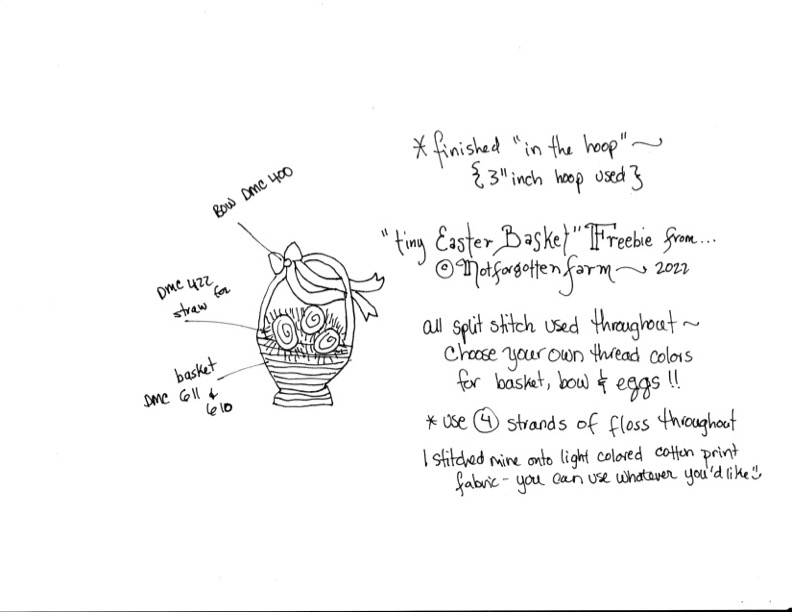 * finished "in the hoop" ~
{3" inch hoop used}
Bow DMC 400
"tiny Easter Basket" Freebie from...
© Notforgotten farm ~ 2022
DMC 422
straw for
all split stitch used throughout ~
Choose your own thread colors
for basket, bow & eggs !!
basket
DMC 611 &
610
* use 4 strands of floss throughout
I stitched mine onto light colored cotton print
fabric - you can use whatever you'd like